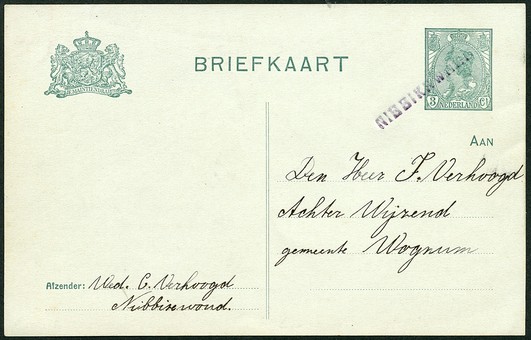 BRIEFKAART
JE MAINTIENDRAI
3 NEDERLAND Ct
NIBBIXWOUD
AAN
Den Heer J. Verhoogd
Achter Wijzend
gemeente Wognum
Afzender: Wed. C. Verhoogd
Nibbixwoud.